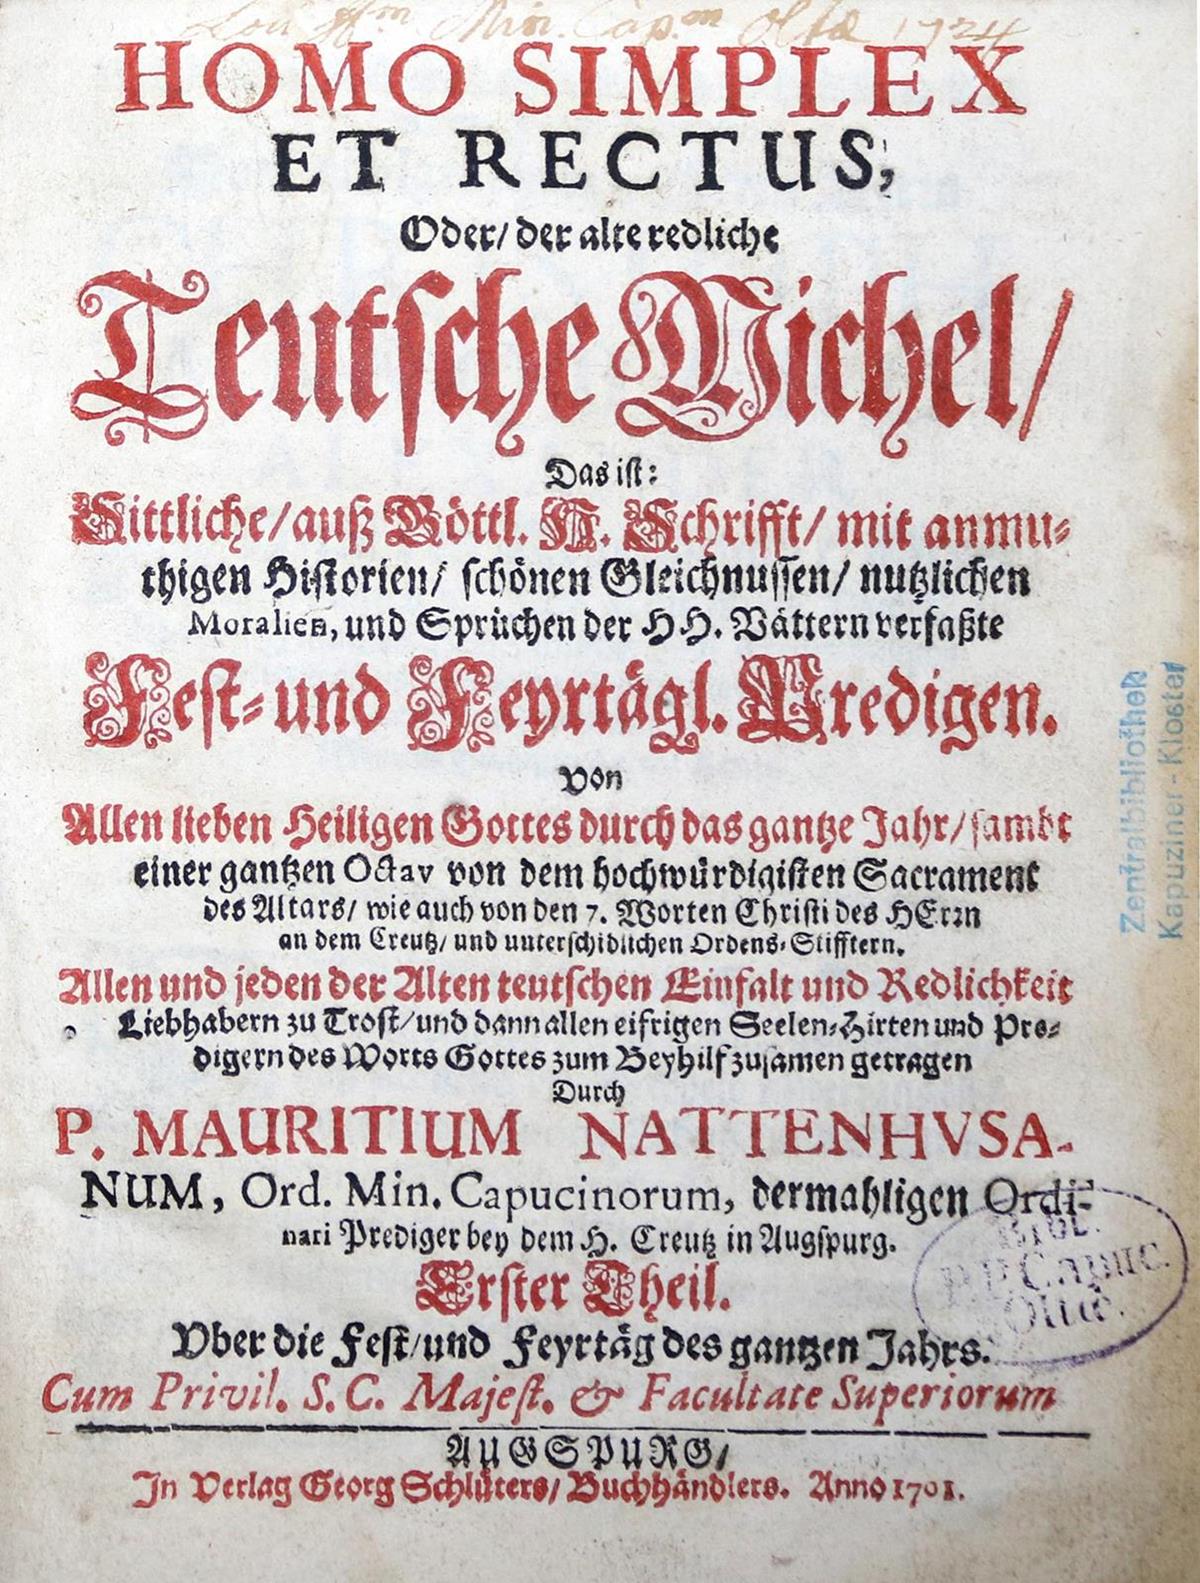 Min. Cap.m Oltae 1724
HOMO SIMPLEX
ET RECTUS,
Oder/ der alte redliche
Teutsche Michel/
Das ist:
Sittliche/ auß Göttl. H. Schrifft/ mit anmu-
thigen Historien/ schönen Gleichnussen/ nutzlichen
Moralien, und Sprüchen der HH. Vättern verfaßte
Fest- und Feyrtägl. Predigen.
Von
Allen lieben Heiligen Gottes durch das gantze Jahr/ sambt
einer gantzen Octav von dem hochwürdigisten Sacrament
des Altars/ wie auch von den 7. Worten Christi des HErrn
an dem Creutz/ und unterschidlichen Ordens-Stifftern.
Allen und jeden der Alten teutschen Einfalt und Redlichkeit
Liebhabern zu Trost/ und dann allen eifrigen Seelen-Hirten und Pre-
digern des Worts Gottes zum Beyhilf zusamen getragen
Durch
P. MAURITIUM NATTENHVSA-
NUM, Ord. Min. Capucinorum, dermahligen Ordi-
nari Prediger bey dem H. Creutz in Augspurg.
Erster Theil.
Vber die Fest/ und Feyrtäg des gantzen Jahrs.
Cum Privil. S. C. Majest. & Facultate Superiorum
AUGSPURG/
In Verlag Georg Schlüters/ Buchhändlers. Anno 1701.
Zentralbibliothek
Kapuziner-Kloster
BIBL.
P.P. Capuc.
Oltae.